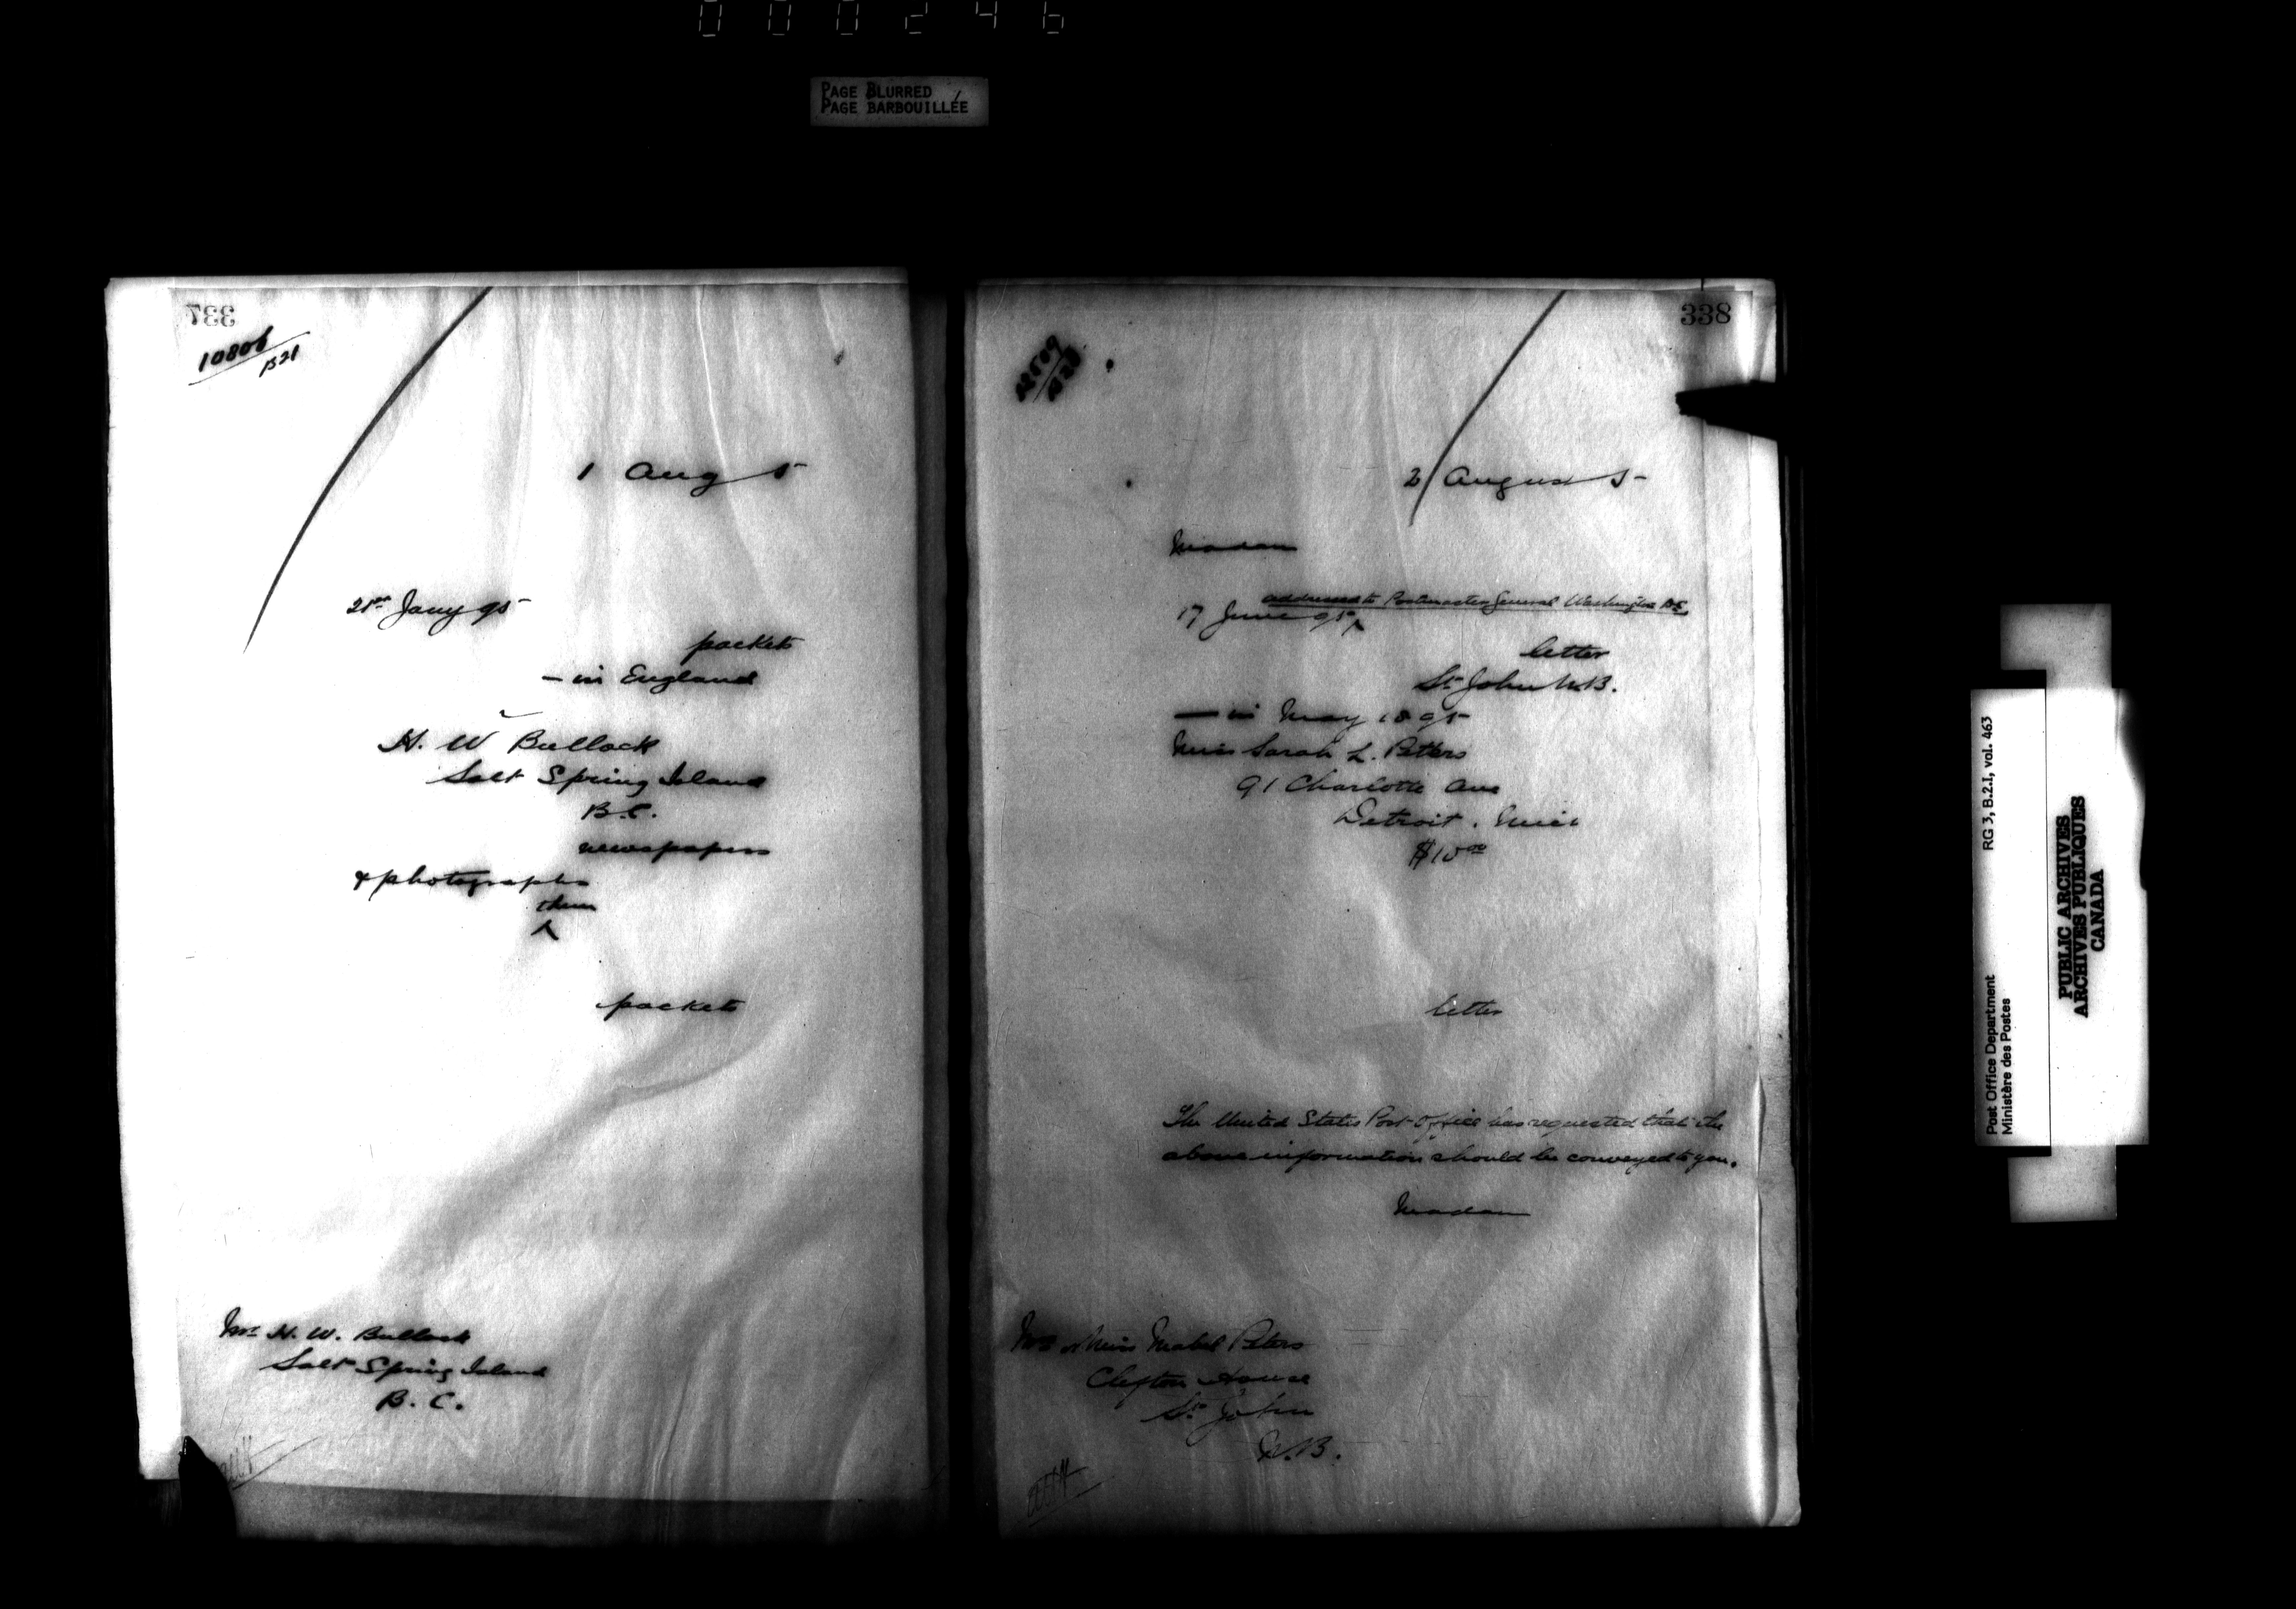 000246
PAGE BLURRED
PAGE BARBOUILLÉE
337
10806
B21
1 Aug 5
21st Jany 95
packets
— in England
H. W Bullock
Salt Spring Island
B.C.
newspapers
& photographs
them
^
packets
Mr H. W. Bullock
Salt Spring Island
B. C.
338
2 August 5
Madam
addressed to Postmaster General Washington D.C.
17 June 95 ^
letter
St John N.B.
— in May 1895
Miss Sarah L. Peters
91 Charlotte Ave
Detroit. Mich
$10 00
letter
The United States Post Office has requested that the
above information should be conveyed to you.
Madam
Mrs or Miss Mabel Peters
Clifton House
St. John
N.B.
Post Office Department
Ministère des Postes
RG 3, B.2.1, vol. 463
PUBLIC ARCHIVES
ARCHIVES PUBLIQUES
CANADA